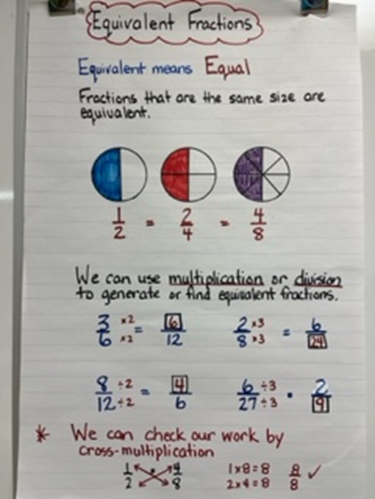 Equivalent Fractions
Equivalent means Equal
Fractions that are the same size are
equivalent.
1/2 = 2/4 = 4/8
We can use multiplication or division
to generate or find equivalent fractions.
3/6 ×2/×2 = 6/12 2/8 ×3/×3 = 6/24
8/12 ÷2/÷2 = 4/6 6/27 ÷3/÷3 = 2/9
* We can check our work by
cross-multiplication
1/2 4/8 1×8=8 8/8 ✓
2×4=8